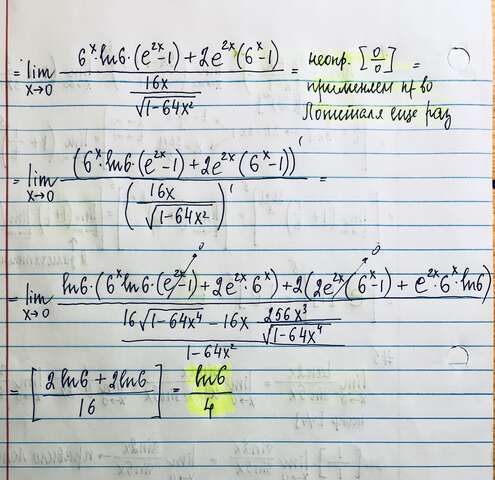 = lim x→0 (6^x·ln6·(e^{2x}-1)+2e^{2x}(6^x-1)) / (16x / √(1-64x²)) = неопр. [0/0] =
применяем пр-во
Лопиталя еще раз
= lim x→0 (6^x·ln6·(e^{2x}-1)+2e^{2x}(6^x-1))' / (16x / √(1-64x²))' =
= lim x→0 (ln6·(6^x ln6·(e^{2x}-1)→0 + 2e^{2x}·6^x) + 2(2e^{2x}(6^x-1)→0 + e^{2x}·6^x ln6)) / ((16√(1-64x⁴) - 16x · 256x³ / √(1-64x⁴)) / (1-64x²))
= [(2ln6+2ln6) / 16] = ln6 / 4